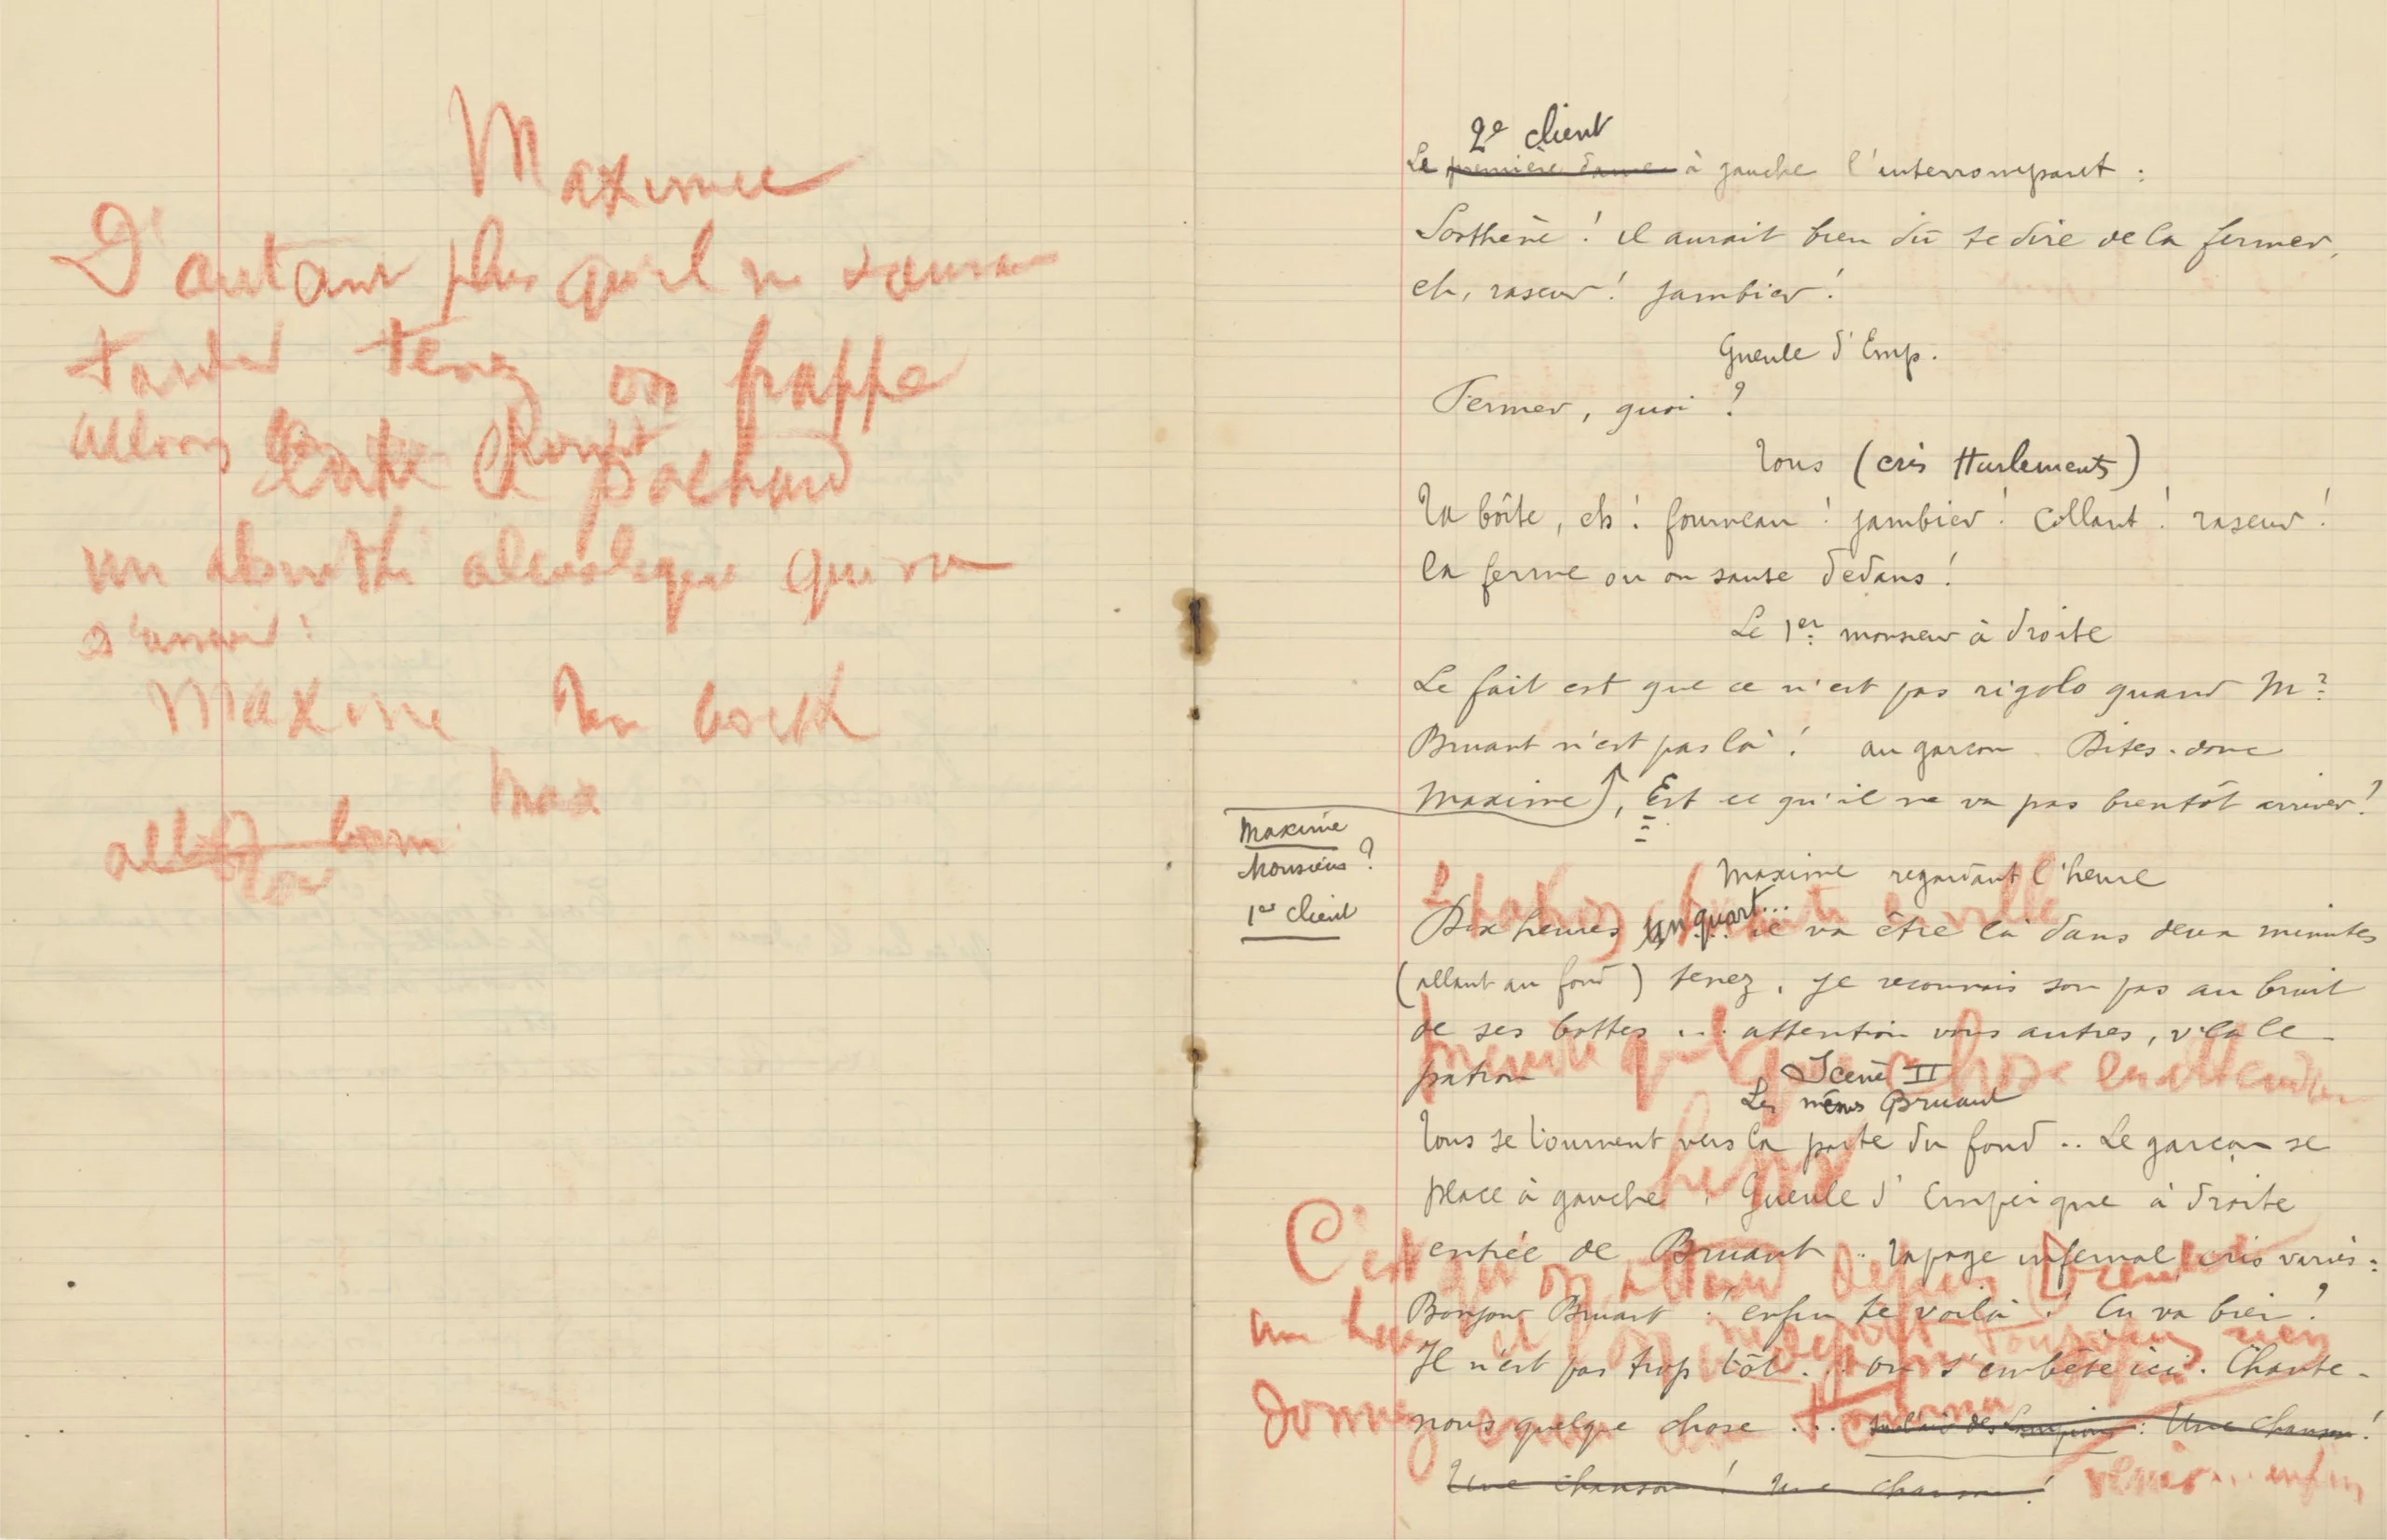 Maxime
D'autant plus qu'il ne saura
tarder tenez on frappe
allons
pochard
un absinthe alcoolique qui va
s'amener!
Maxime Un bock
Max
allons bon
2e client
Le première dame à gauche l'interrompant :
Sosthène ! il aurait bien dû te dire de la fermer,
eh, raseur ! jambier !
Gueule d'Emp.
Fermer, quoi ?
Tous (cris Hurlements)
Ta boîte, eh ! fourneau ! jambier ! collant ! raseur !
la ferme ou on saute dedans !
Le 1er monsieur à droite
Le fait est que ce n'est pas rigolo quand Mr
Bruant n'est pas là ! au garçon. Dites-donc
Maxime, Est ce qu'il ne va pas bientôt arriver ?
Maxime
Monsieur ?
1er client
Maxime regardant l'heure
Le patron est en ville
Dix heures un quart... il va être là dans deux minutes
(allant au fond) tenez, je reconnais son pas au bruit
de ses bottes ... attention vous autres, v'la le
prendre quelque chose en attendant
patron
Scène II
Les mêmes Bruant
Tous se tournent vers la porte du fond .. Le garçon se
place à gauche, Gueule d'Empeigne à droite
entrée de Bruant .. tapage infernal cris variés :
C'est qu'on attend depuis
Bonjour Bruant ! enfin te voilà ! Ça va bien ?
un heure et
toujours rien
Il n'est pas trop tôt ... on s'embête ici. Chante-
nous quelque chose ... sur l'air des Lampions : Une chanson !
donnez
Une chanson ! Une chanson !
venir ... enfin